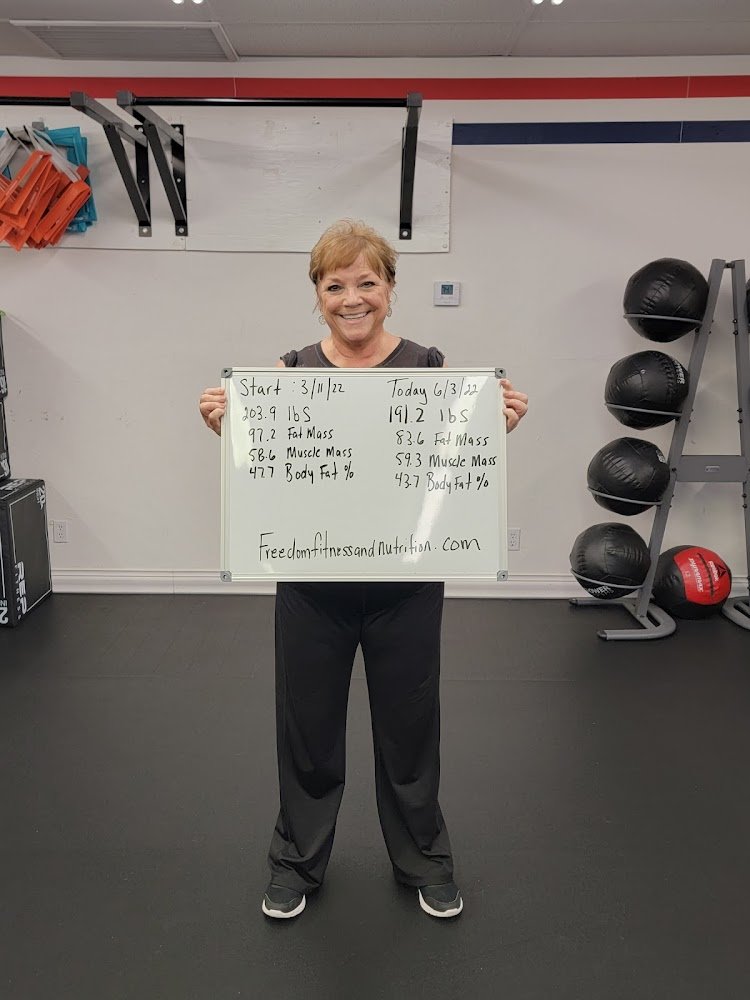 Start : 3/11/22 Today 6/3/22
203.9 lbs 191.2 lbs
97.2 Fat Mass 83.6 Fat Mass
58.6 Muscle Mass 59.3 Muscle Mass
47.7 Body Fat % 43.7 Body Fat %
Freedomfitnessandnutrition.com
REP